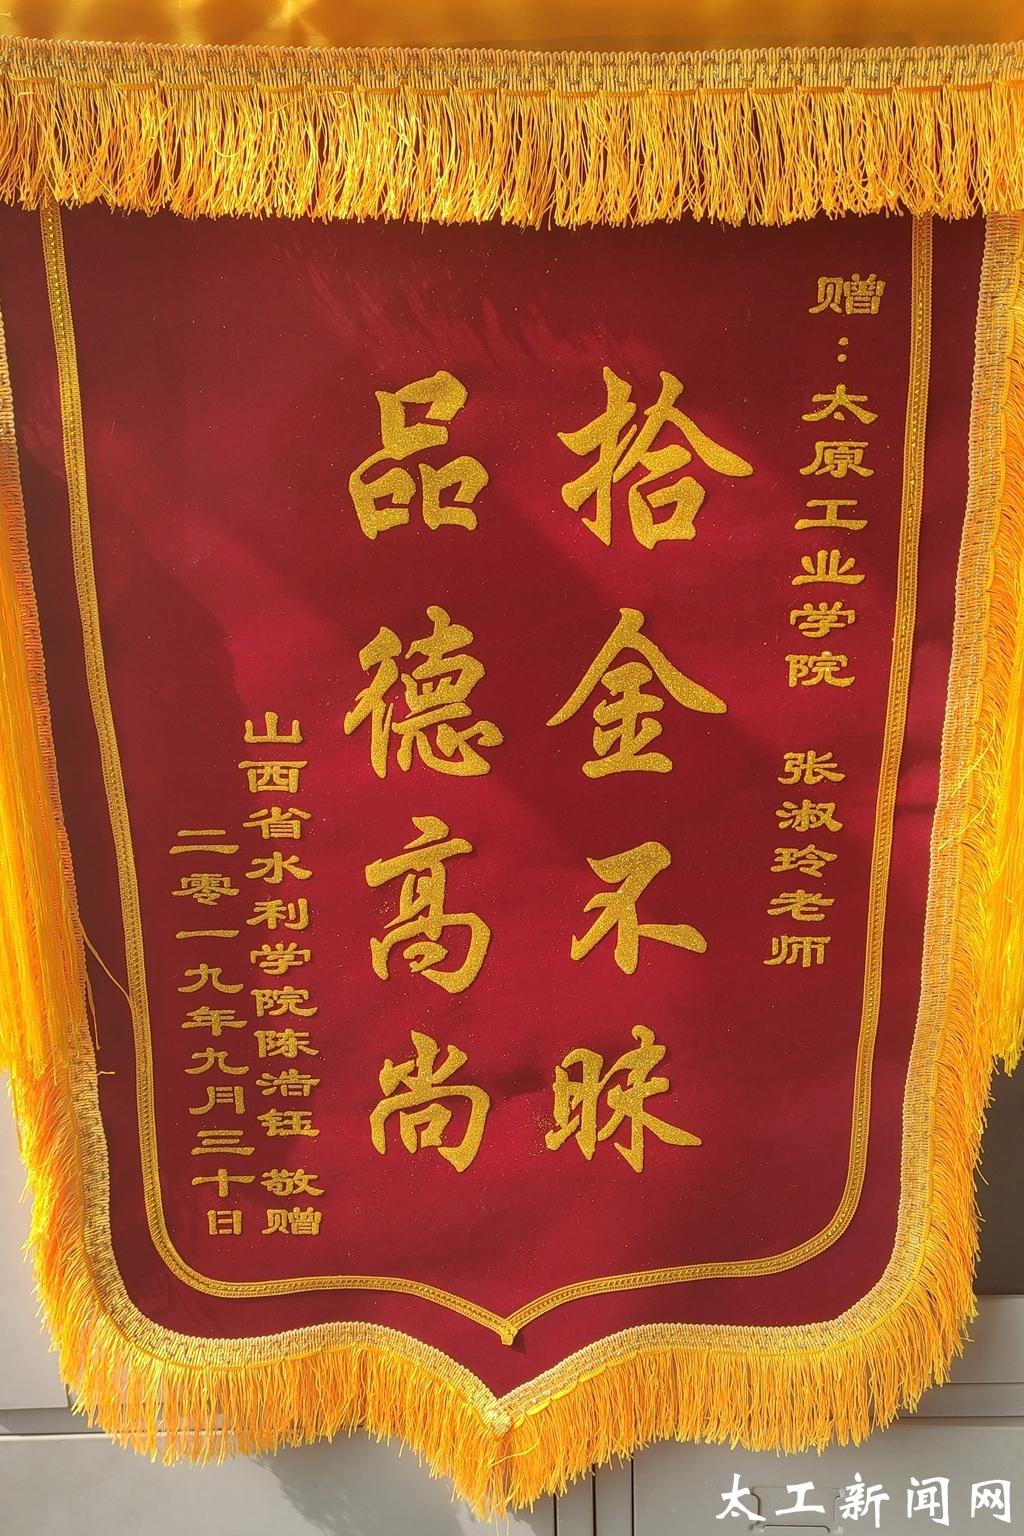 赠：太原工业学院 张淑玲老师
拾金不昧
品德高尚
山西省水利学院陈浩钰 敬赠
二零一九年九月三十日
太工新闻网